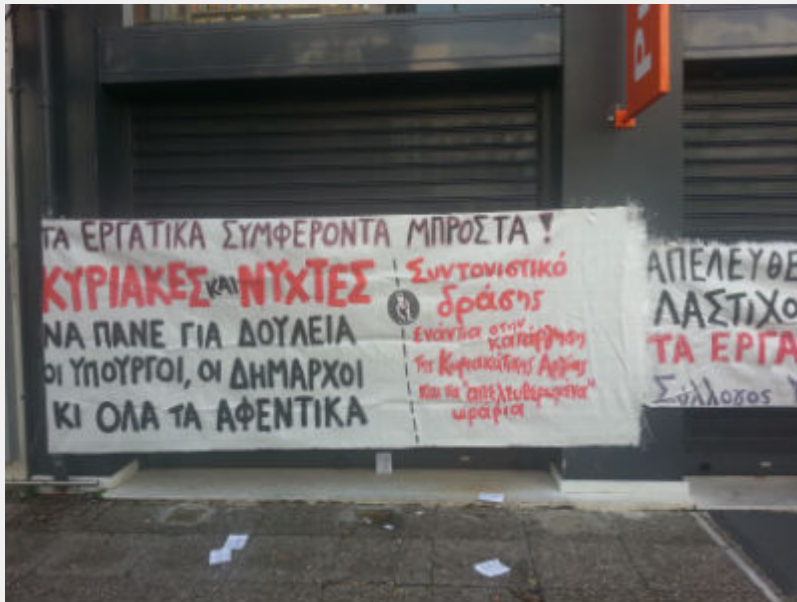 ΤΑ ΕΡΓΑΤΙΚΑ ΣΥΜΦΕΡΟΝΤΑ ΜΠΡΟΣΤΑ !
ΚΥΡΙΑΚΕΣ ΚΑΙ ΝΥΧΤΕΣ
ΝΑ ΠΑΝΕ ΓΙΑ ΔΟΥΛΕΙΑ
ΟΙ ΥΠΟΥΡΓΟΙ, ΟΙ ΔΗΜΑΡΧΟΙ
ΚΙ ΟΛΑ ΤΑ ΑΦΕΝΤΙΚΑ
Συντονιστικό
δράσης
ενάντια στην
κατάργηση
της Κυριακάτικης Αργίας
και τα "απελευθερωμένα"
ωράρια
ΑΠΕΛΕΥΘΕ
ΛΑΣΤΙΧΟ
ΤΑ ΕΡΓΑ
Σύλλογος